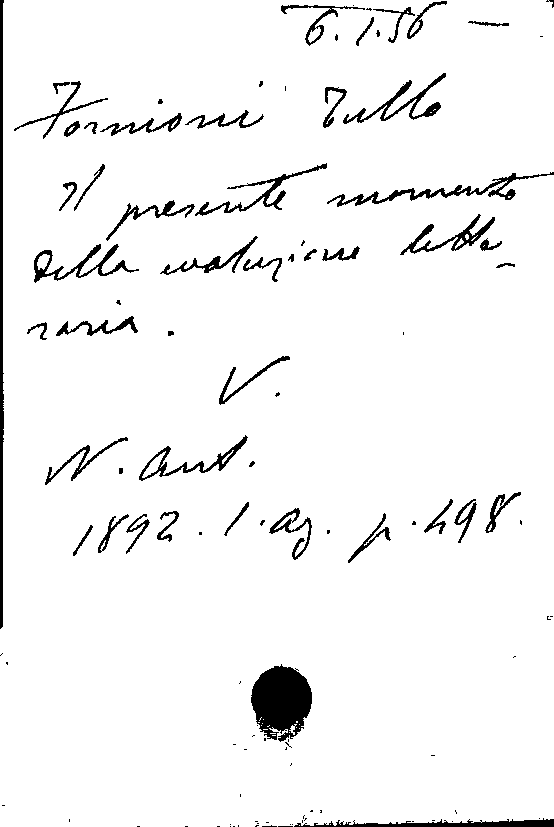 6.1.56 —
Fornioni Tullo
Il presente momento
della evoluzione lette-
raria.
V.
N. Ant.
1892. 1. ag. p. 498.